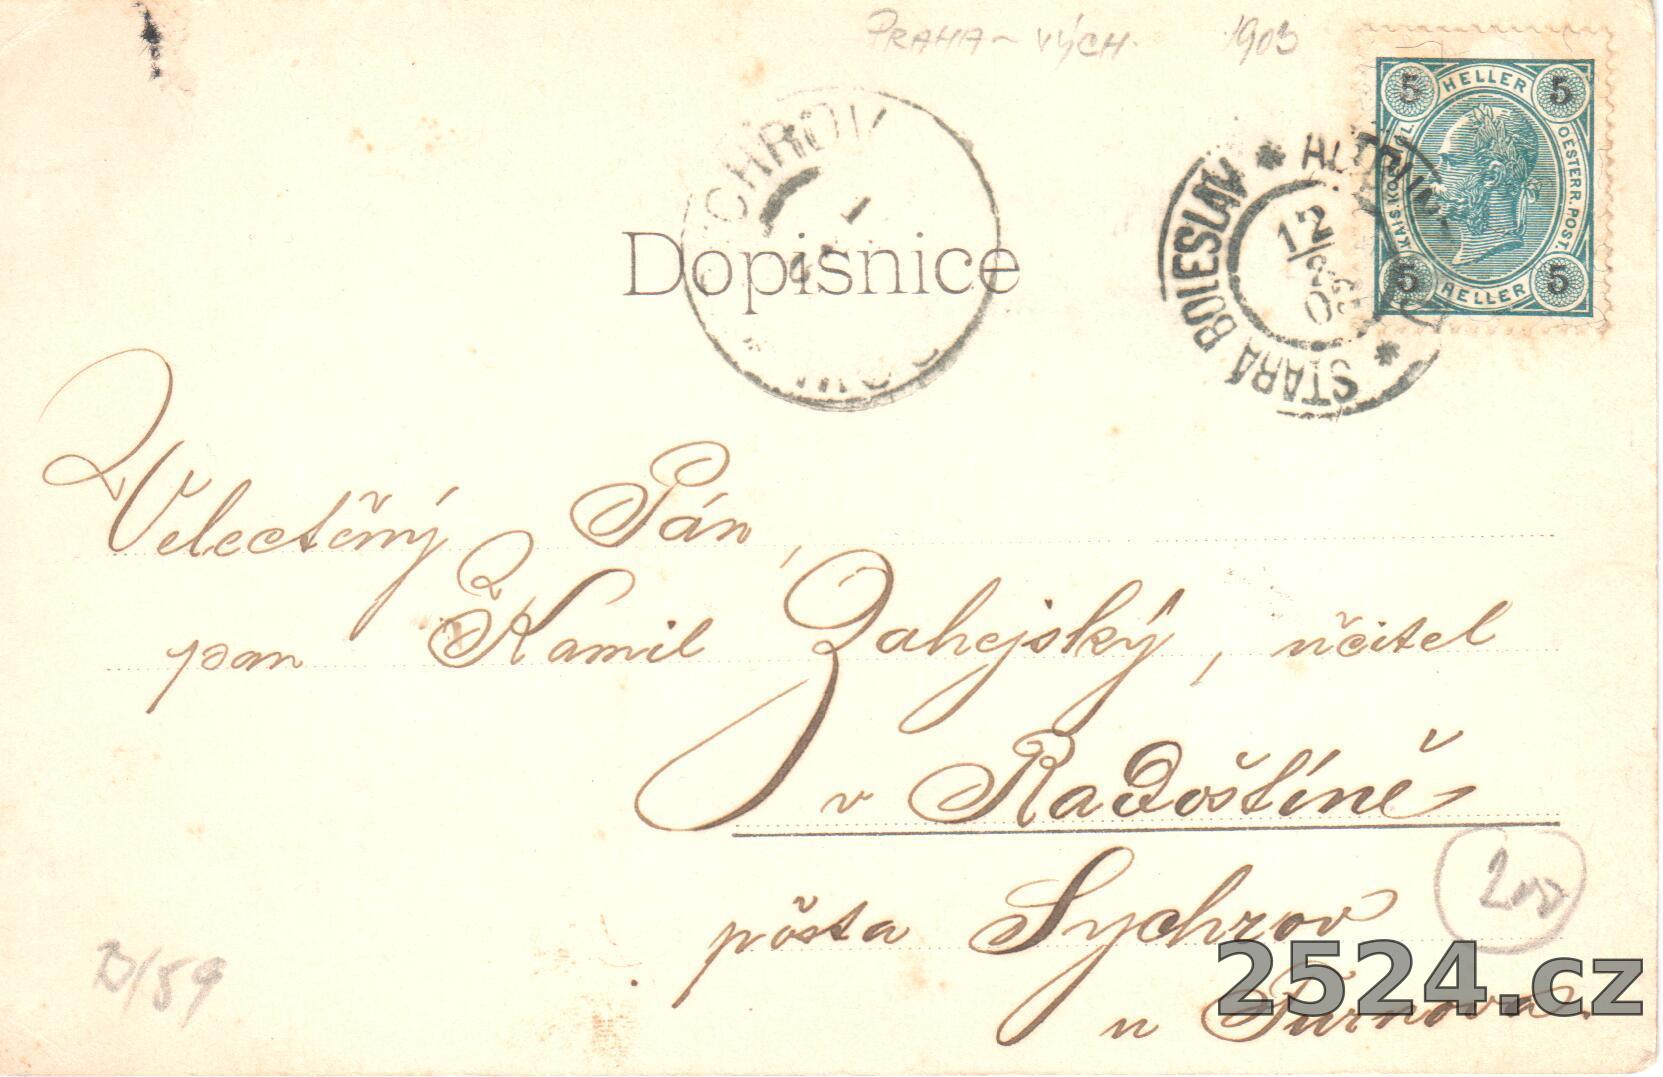 PRAHA - VÝCH. 1903
5 HELLER 5
KAIS. KÖNIGL. OESTERR. POST.
5 HELLER 5
STARÁ BOLESLAV
12
CHROV
Dopisnice
Velectěný Pán,
pan Kamil Zahejský, učitel
v Radoštíně
pošta Sychrov
u Turnova.
200
B/59
2524.cz